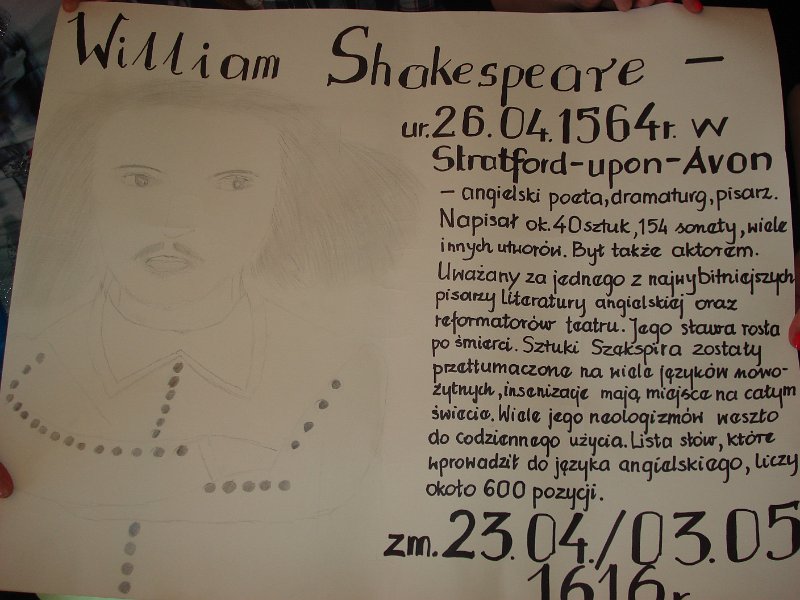 William Shakespeare –
ur. 26.04.1564r. w
Stratford-upon-Avon
– angielski poeta, dramaturg, pisarz.
Napisał ok. 40 sztuk, 154 sonety, wiele
innych utworów. Był także aktorem.
Uważany za jednego z najwybitniejszych
pisarzy literatury angielskiej oraz
reformatorów teatru. Jego sława rosła
po śmierci. Sztuki Szekspira zostały
przetłumaczone na wiele języków nowo-
żytnych, inscenizacje mają miejsce na całym
świecie. Wiele jego neologizmów weszło
do codziennego użycia. Lista słów, które
wprowadził do języka angielskiego, liczy
około 600 pozycji.
zm. 23.04./03.05
1616r